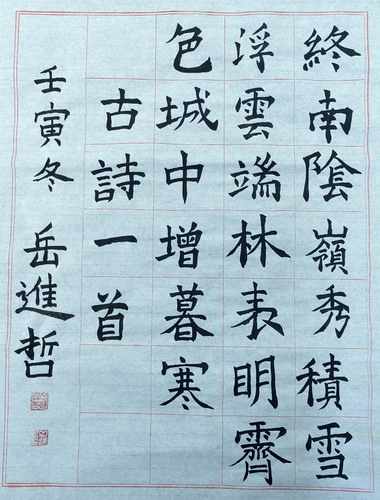 終南陰嶺秀積雪
浮雲端林表明霽
色城中增暮寒
古詩一首
壬寅冬岳進哲